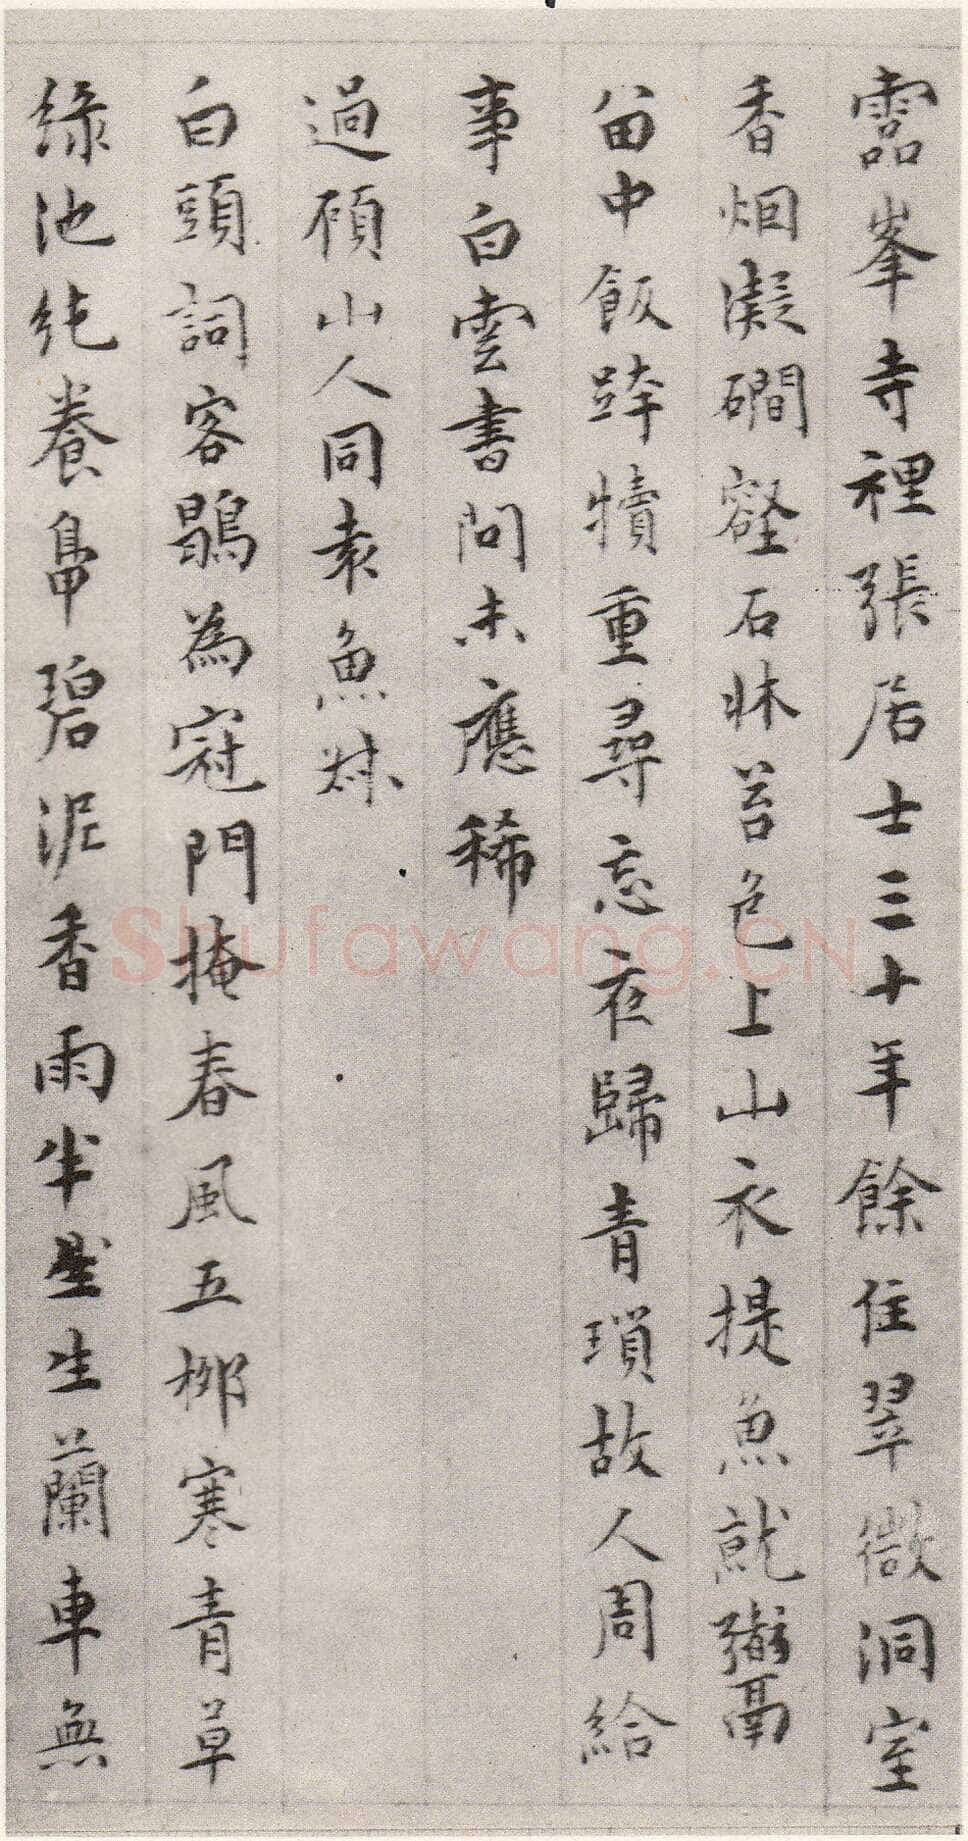 霝峯寺裡張居士三十年餘住翠微洞室
香烟凝磵壑石牀苔色上山衣提魚就鬻
畨中飯跸犢重尋忘夜歸青瑣故人周給
事白雲書問未應稀
過碩山人同袁魚
白頭詞客鶡為冠門掩春風五柳寒青草
綠池純養鼻碧泥香雨半壁生蘭車無
Shufawang.CN